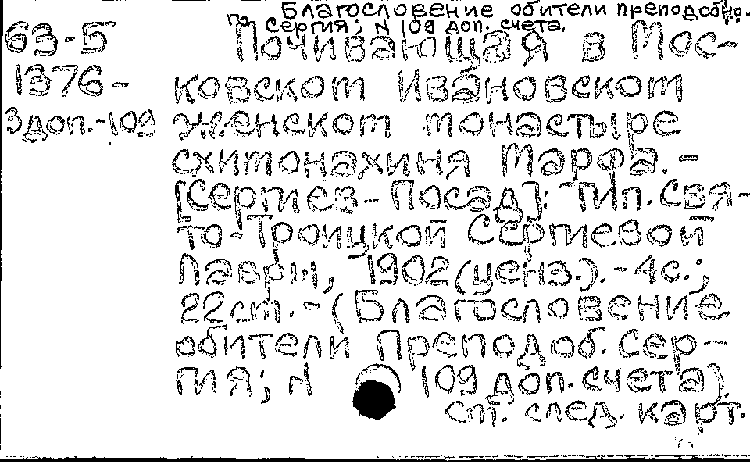 Благословение обители преподобно-
го Сергия; N 109 доп. счета.
63-5
1376-
3доп.-109
Почивающая в Мос-
ковском Ивановском
женском монастыре
схимонахиня Марфа. -
[Сергиев-Посад]: Тип. Свя-
то-Троицкой Сергиевой
Лавры, 1902(ценз.). - 4с.;
22см. - (Благословение
обители Преподоб. Сер-
гия; N 109 доп. счета)
см. след. карт.